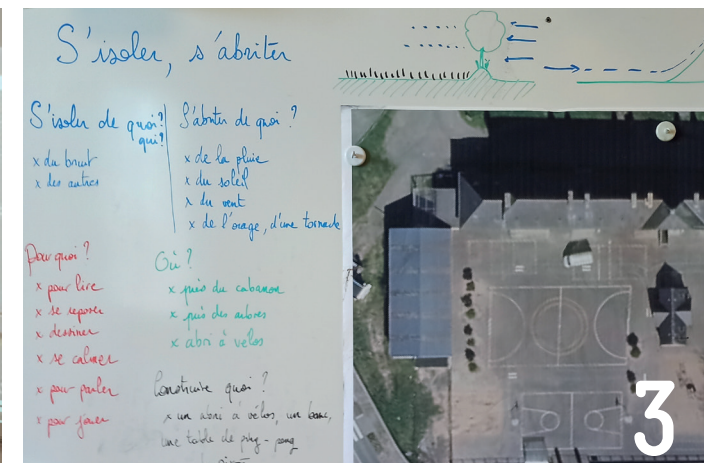 S'isoler, s'abriter
S'isoler de quoi?
qui?
x du bruit
x des autres
S'abriter de quoi ?
x de la pluie
x du soleil
x du vent
x de l'orage, d'une tornade
Pourquoi ?
x pour lire
x se reposer
x dessiner
x se calmer
x pour parler
x pour jouer
Où ?
x près du cabanon
x près des arbres
x abri à vélos
Construire quoi ?
x un abri à vélos, un banc,
une table de ping-pong
3